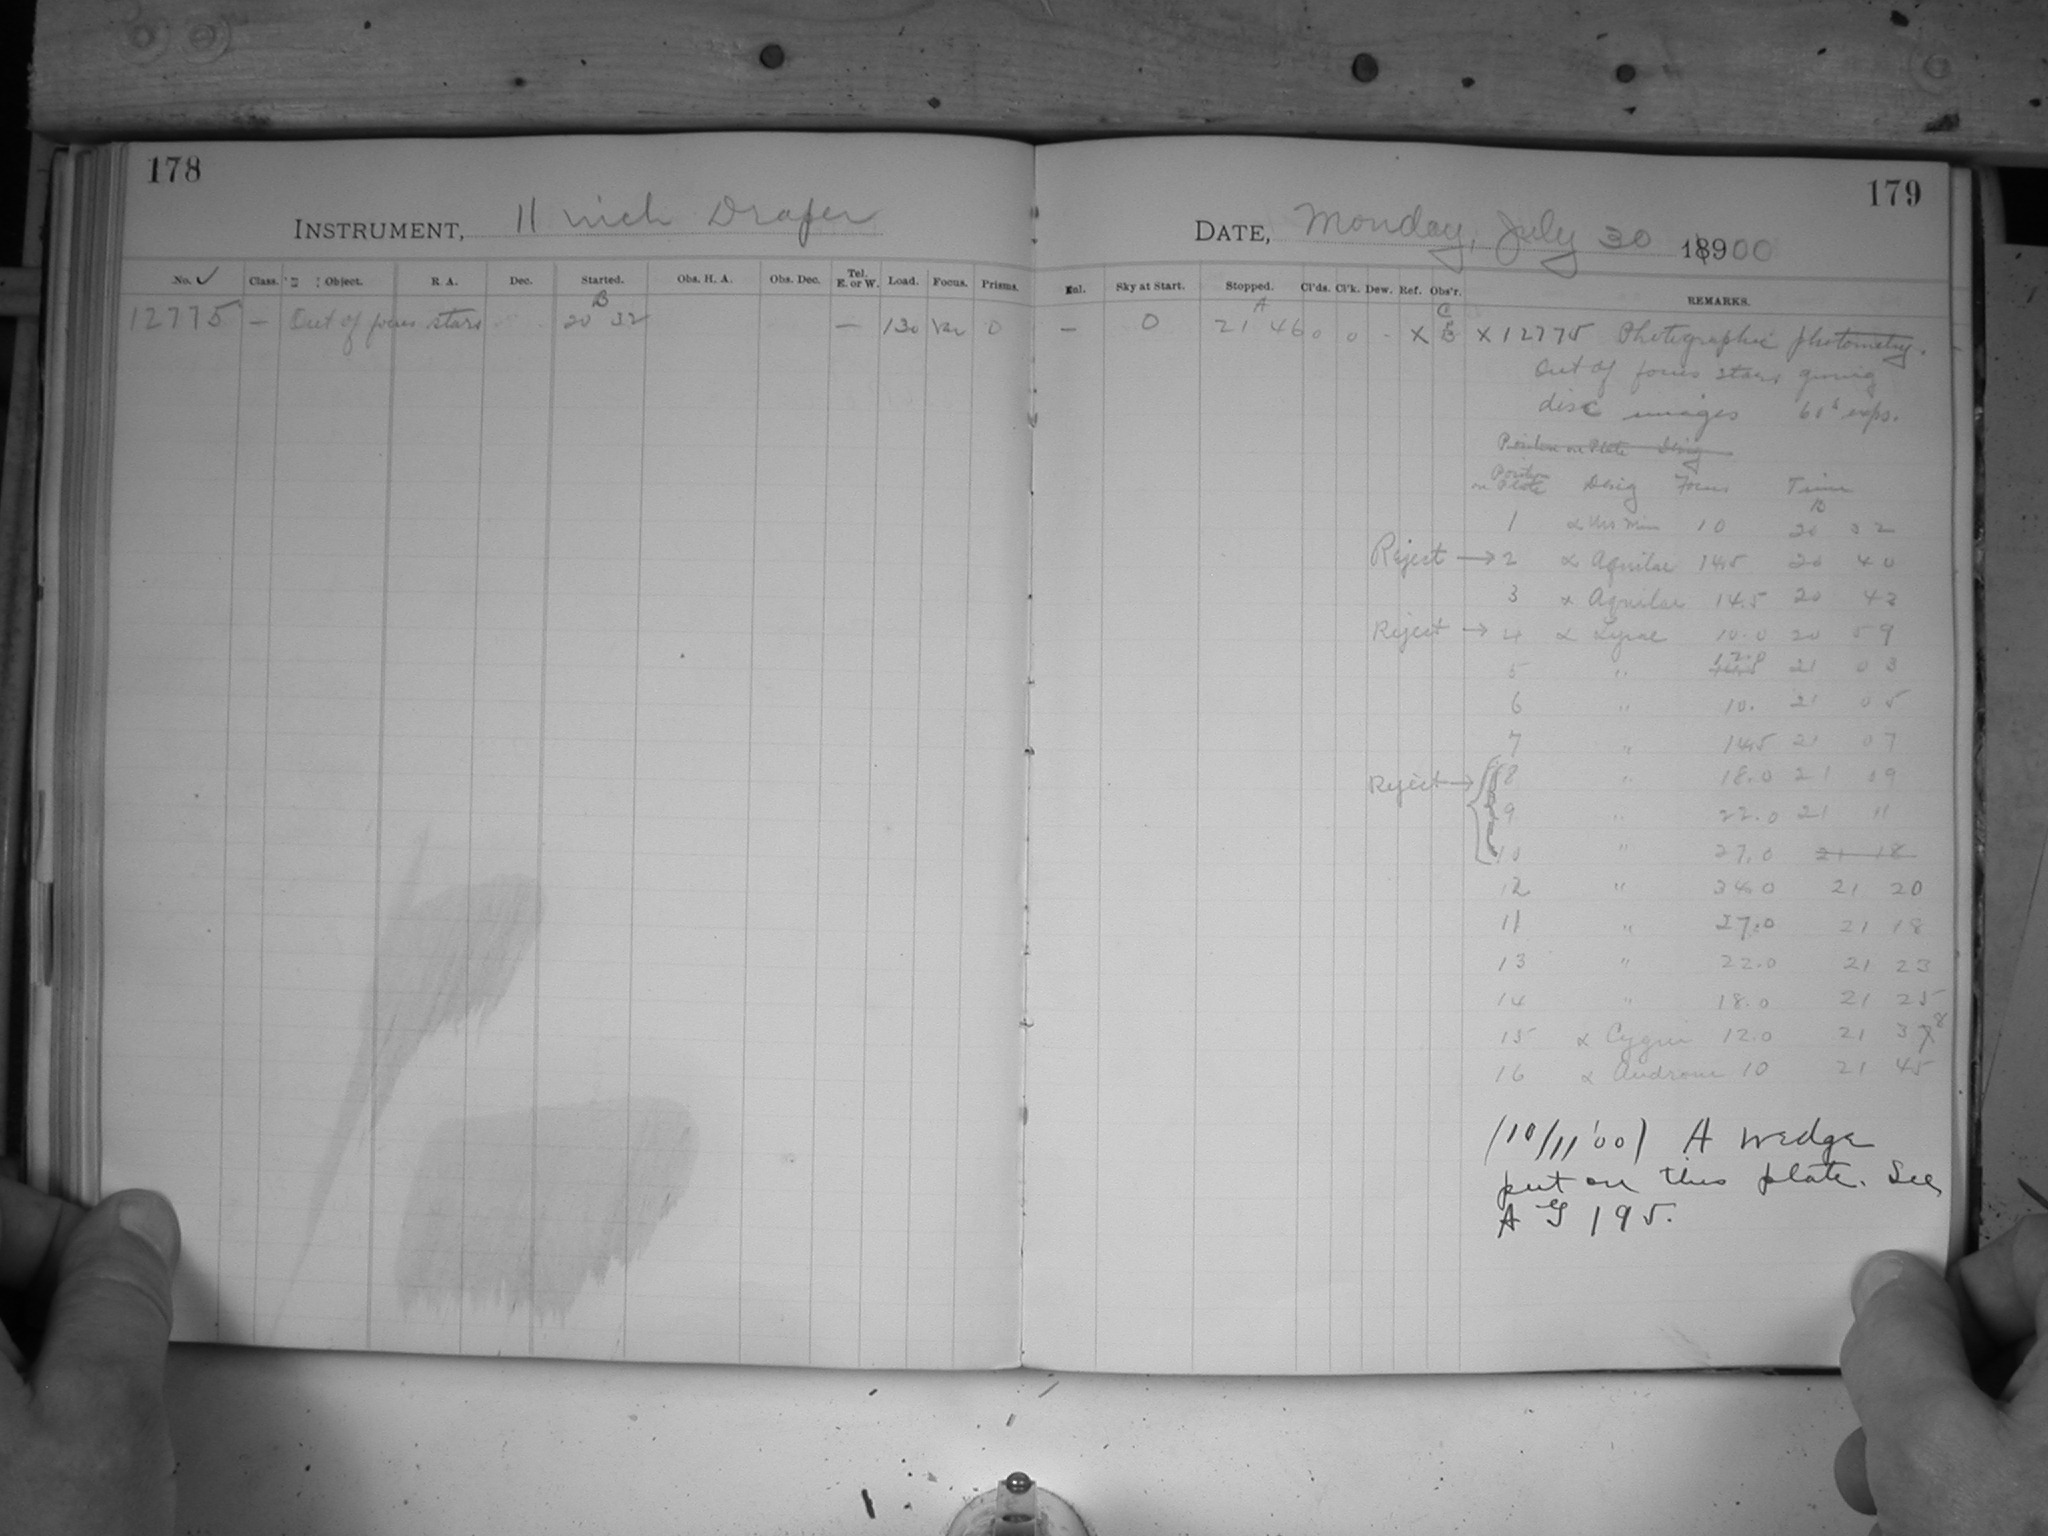 178
INSTRUMENT, 11 inch Draper
No. ✓ Class. Object. R. A. Dec. Started. Obs. H. A. Obs. Dec. Tel. E. or W. Load. Focus. Prisms.
12775 — Out of focus stars B 20 32 — 130 Var 0
179
DATE, Monday, July 30 18900
Sky at Start. Stopped. Cl'ds. Cl'k. Dew. Ref. Obs'r. REMARKS.
— 0 A 21 46 0 0 - X X 12775 Photographic photometry.
Out of focus stars giving
disc images 60s exps.
Position on Plate Desig
Position on Plate Desig Focus Time
B
1 α Urs Min 10 20 32
Reject → 2 α Aquilae 14.5 20 40
3 α Aquilae 14.5 20 43
Reject → 4 α Lyrae 10.0 20 59
5 " 12.0 21 03
6 " 10. 21 05
7 " 14.5 21 07
Reject → 8 " 18.0 21 09
9 " 22.0 21 11
10 " 27.0 21 18
12 " 34.0 21 20
11 " 27.0 21 18
13 " 22.0 21 23
14 " 18.0 21 25
15 α Cygni 12.0 21 378
16 α Androm 10 21 45
(10/11'00) A wedge
put on this plate. See
A G 195.